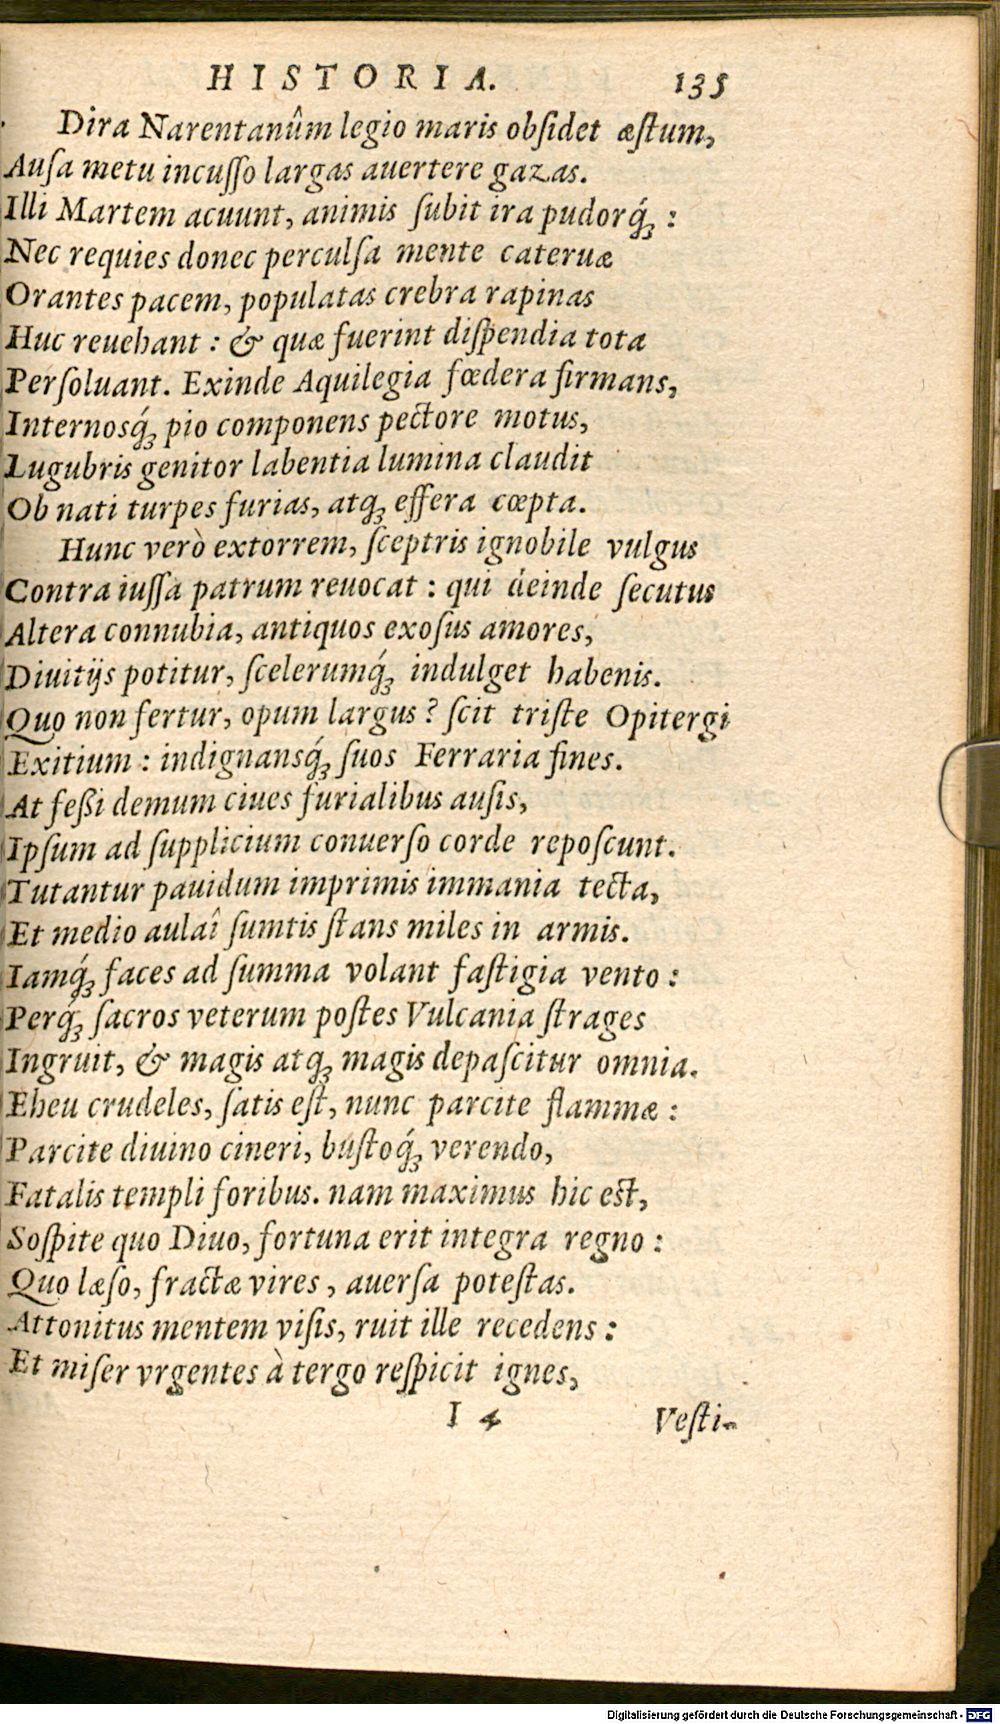 HISTORIA. 135
Dira Narentanûm legio maris obsidet æstum,
Ausa metu incusso largas auertere gazas.
Illi Martem acuunt, animis subit ira pudorq́; :
Nec requies donec perculsa mente cateruæ
Orantes pacem, populatas crebra rapinas
Huc reuehant : & quæ fuerint dispendia tota
Persoluant. Exinde Aquilegia fœdera firmans,
Internosq́; pio componens pectore motus,
Lugubris genitor labentia lumina claudit
Ob nati turpes furias, atq; effera cœpta.
Hunc verò extorrem, sceptris ignobile vulgus
Contra iussa patrum reuocat : qui deinde secutus
Altera connubia, antiquos exosus amores,
Diuitijs potitur, scelerumq́; indulget habenis.
Quo non fertur, opum largus? scit triste Opitergi
Exitium : indignansq́; suos Ferraria fines.
At feßi demum ciues furialibus ausis,
Ipsum ad supplicium conuerso corde reposcunt.
Tutantur pauidum imprimis immania tecta,
Et medio aulaî sumtis stans miles in armis.
Iamq́; faces ad summa volant fastigia vento :
Perq́; sacros veterum postes Vulcania strages
Ingruit, & magis atq; magis depascitur omnia.
Eheu crudeles, satis est, nunc parcite flammæ :
Parcite diuino cineri, bustoq́; verendo,
Fatalis templi foribus. nam maximus hic est,
Sospite quo Diuo, fortuna erit integra regno :
Quo læso, fractæ vires, auersa potestas.
Attonitus mentem visis, ruit ille recedens :
Et miser vrgentes à tergo respicit ignes,
I 4 Vesti-
Digitalisierung gefördert durch die Deutsche Forschungsgemeinschaft - DFG